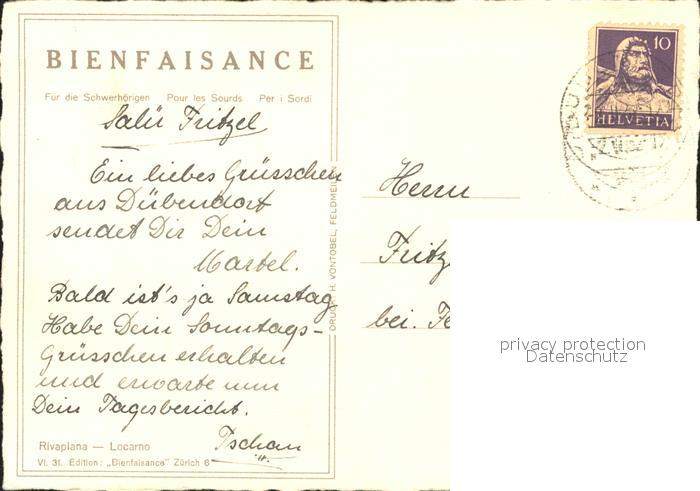 BIENFAISANCE
Für die Schwerhörigen Pour les Sourds Per i Sordi
Salü Fritzel
Ein liebes Grüsschen
aus Dübendorf
sendet Dir Dein
Martel.
Bald ist's ja Samstag
Habe Dein Sonntags-
Grüsschen erhalten
und erwarte nun
Dein Tagesbericht.
Tschau
Rivapiana — Locarno
VI. 31. Edition: „Bienfaisance" Zürich 6
DRUCK H. VONTOBEL, FELDMEILEN
10
HELVETIA
Herrn
Fritz
bei. Fe
privacy protection
Datenschutz